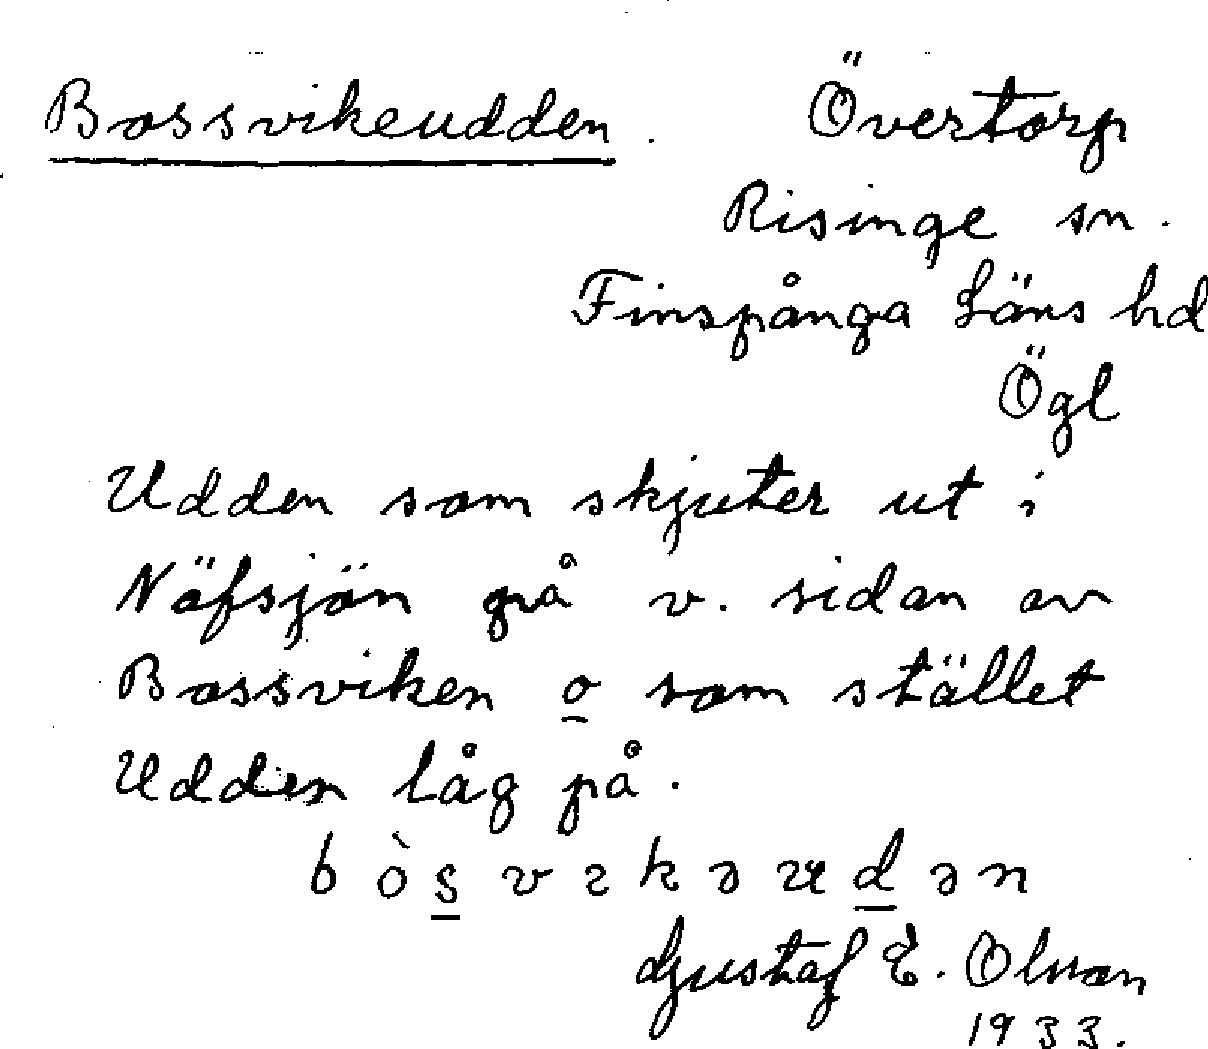 Bossvikeudden. Övertorp
Risinge sn.
Finspånga Läns hd
Ögl
Udden som skjuter ut i
Näfsjön på v. sidan av
Bossviken o som stället
Udden låg på.
Gustaf E. Olson
1933.